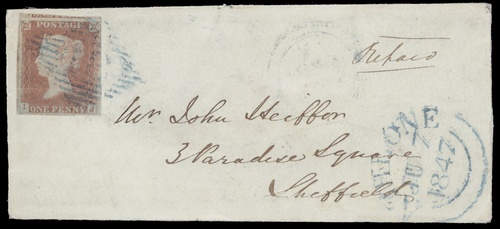 POSTAGE
ONE PENNY
Prepaid
Mr. John Heiffor
3 Paradise Square
Sheffield
E
1847